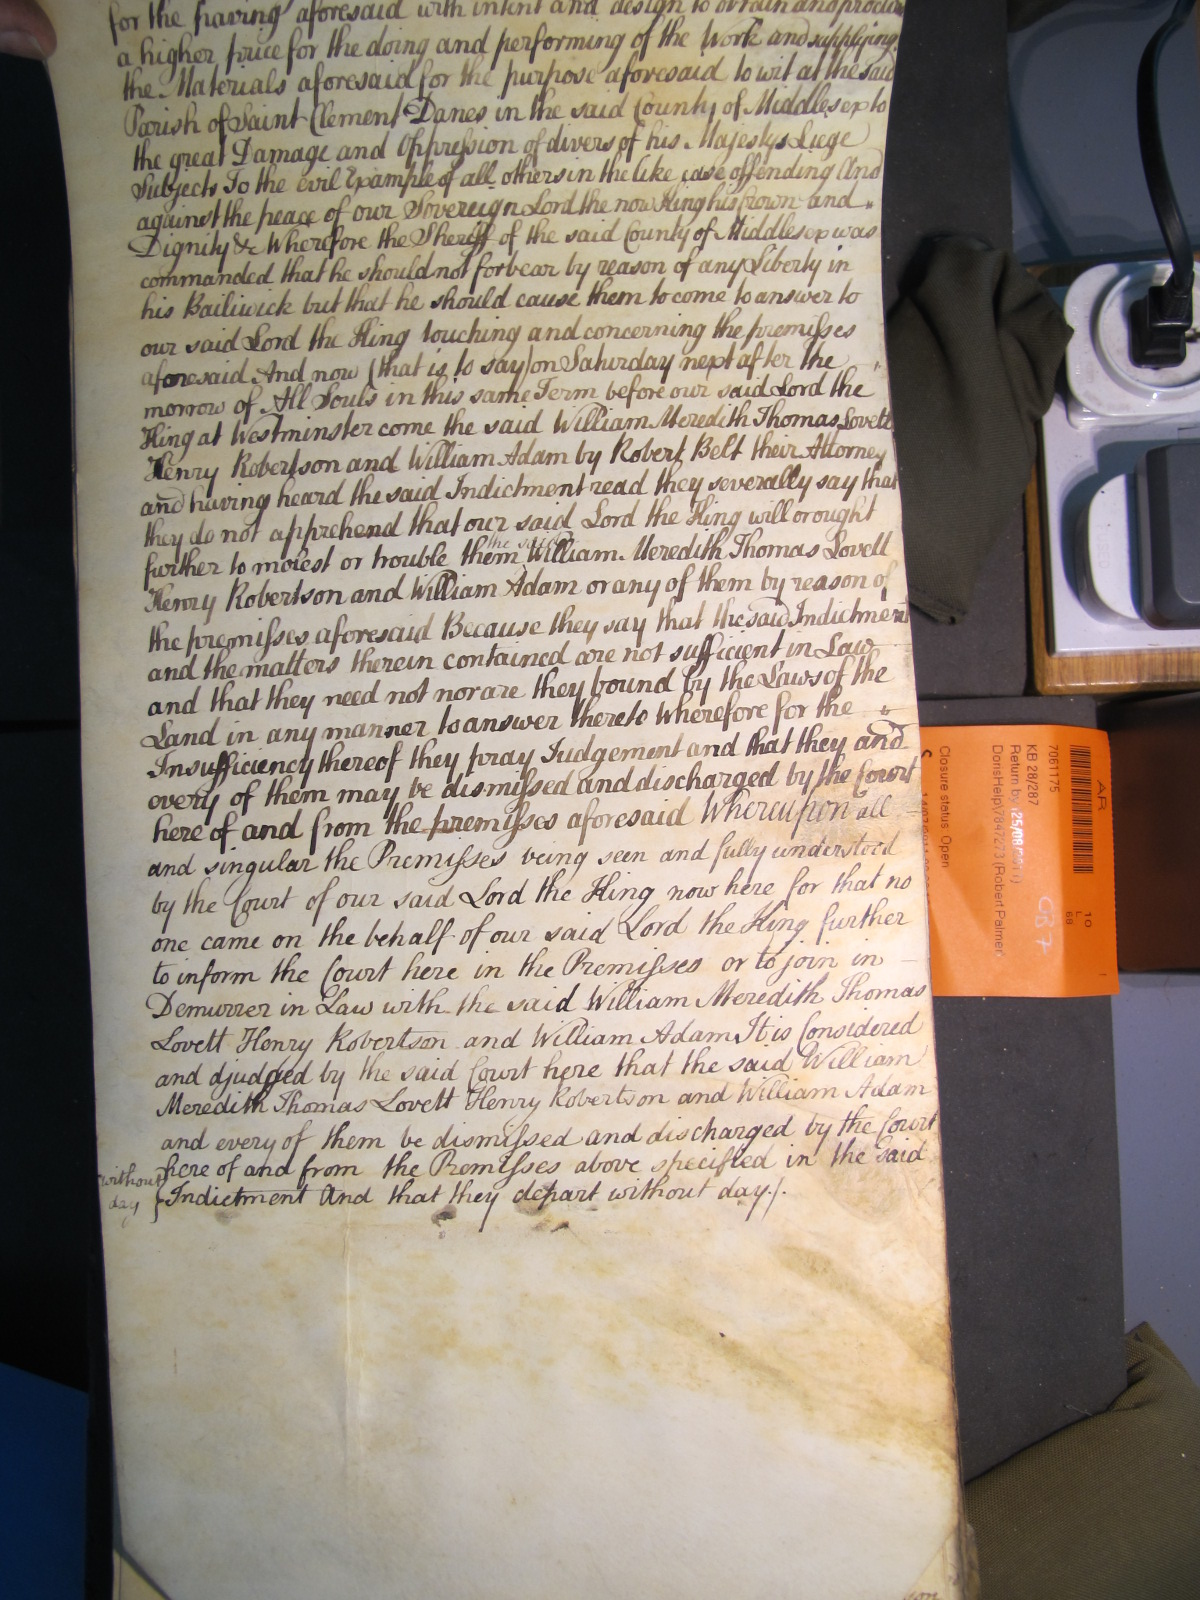 for the paving aforesaid with intent and design to obtain and procure
a higher price for the doing and performing of the Work and supplying
the Materials aforesaid for the purpose aforesaid to wit at the said
Parish of Saint Clement Danes in the said County of Middlesex to
the great Damage and Oppression of divers of his Majestys Liege
Subjects To the evil Example of all others in the like case offending And
against the peace of our Sovereign Lord the now King his Crown and
Dignity &c Wherefore the Sheriff of the said County of Middlesex was
commanded that he should not forbear by reason of any Liberty in
his Bailiwick but that he should cause them to come to answer to
our said Lord the King touching and concerning the premisses
aforesaid And now (that is to say) on Saturday next after the
morrow of All Souls in this same Term before our said Lord the
King at Westminster come the said William Meredith Thomas Lovett
Henry Robertson and William Adam by Robert Belt their Attorney
and having heard the said Indictment read they severally say that
they do not apprehend that our said Lord the King will or ought
further to molest or trouble them the said William Meredith Thomas Lovell
Henry Robertson and William Adam or any of them by reason of
the premisses aforesaid Because they say that the said Indictment
and the matters therein contained are not sufficient in Law
and that they need not nor are they bound by the Laws of the
Land in any manner to answer thereto Wherefore for the
Insufficiency thereof they pray Judgement and that they and
every of them may be dismissed and discharged by the Court
here of and from the premisses aforesaid Whereupon all
and singular the Premisses being seen and fully understood
by the Court of our said Lord the King now here for that no
one came on the behalf of our said Lord the King further
to inform the Court here in the Premisses or to join in
Demurrer in Law with the said William Meredith Thomas
Lovett Henry Robertson and William Adam It is Considered
and djudged by the said Court here that the said William
Meredith Thomas Lovett Henry Robertson and William Adam
and every of them be dismissed and discharged by the Court
here of and from the Premisses above specified in the said
Indictment And that they depart without day.
without
day
AR
7061175
KB 28/287
Return by (25/08/2011)
DorisHelp\7847273 (Robert Palmer
Closure status Open
10
L
68